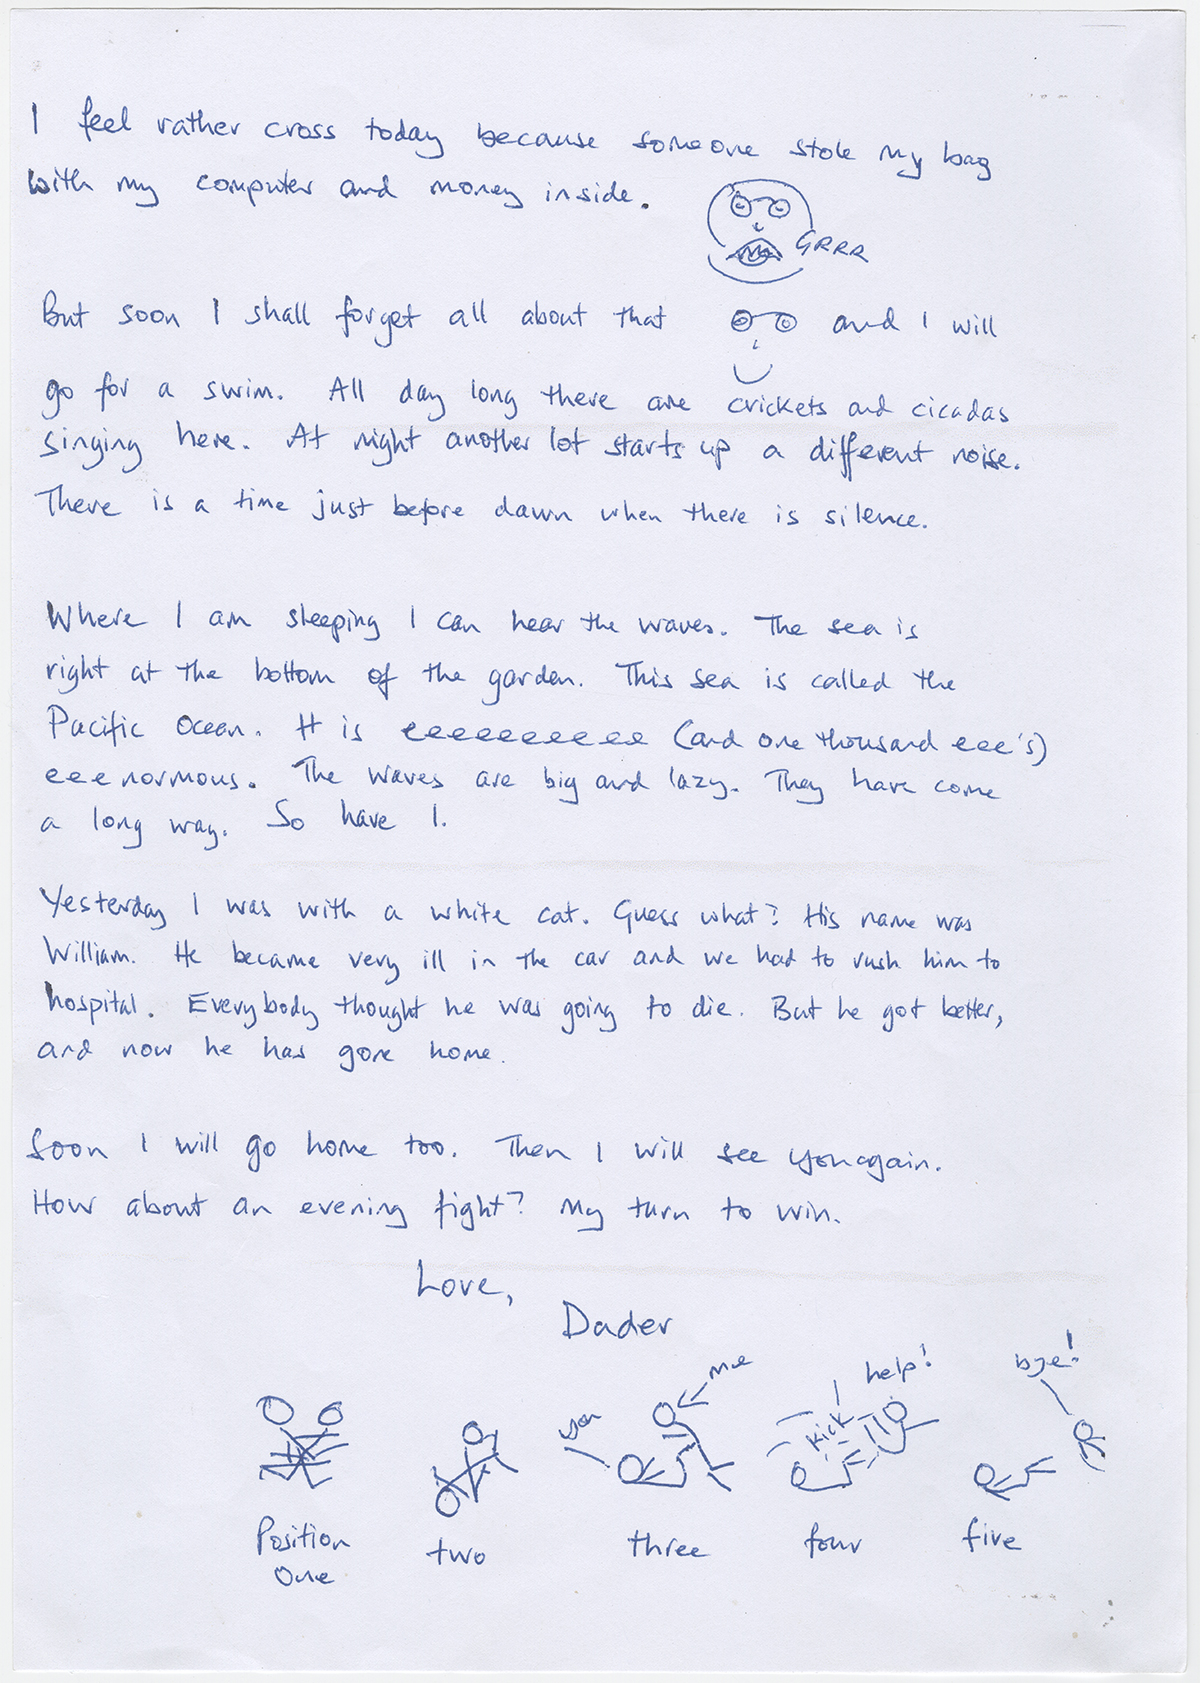 I feel rather cross today because someone stole my bag
with my computer and money inside.
GRRR
But soon I shall forget all about that and I will
go for a swim. All day long there are crickets and cicadas
singing here. At night another lot starts up a different noise.
There is a time just before dawn when there is silence.
Where I am sleeping I can hear the waves. The sea is
right at the bottom of the garden. This sea is called the
Pacific Ocean. It is eeeeeeeeee (and one thousand eee's)
eeenormous. The waves are big and lazy. They have come
a long way. So have I.
Yesterday I was with a white cat. Guess what? His name was
William. He became very ill in the car and we had to rush him to
hospital. Everybody thought he was going to die. But he got better,
and now he has gone home.
Soon I will go home too. Then I will see you again.
How about an evening fight? My turn to win.
Love,
Dader
you
me
kick
help!
bye!
Position
One
two
three
four
five